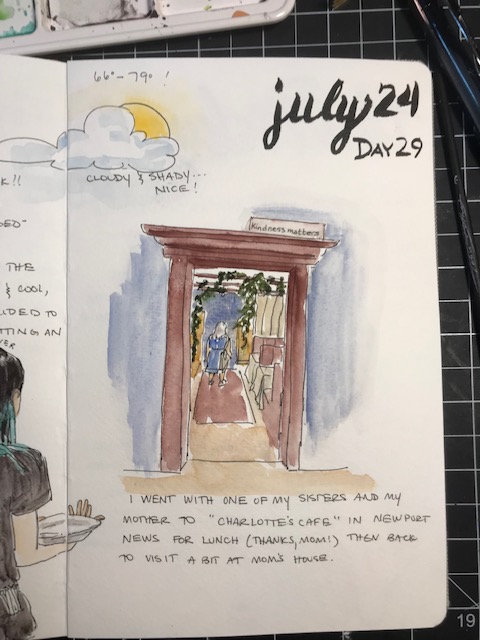 66°-79° !
july 24
DAY 29
CLOUDY & SHADY...
NICE!
K!!
DED"
THE
& COOL,
UDED TO
TTING AN
VER
Kindness matters
I WENT WITH ONE OF MY SISTERS AND MY
MOTHER TO "CHARLOTTE'S CAFE" IN NEWPORT
NEWS FOR LUNCH (THANKS, MOM!) THEN BACK
TO VISIT A BIT AT MOM'S HOUSE.
19